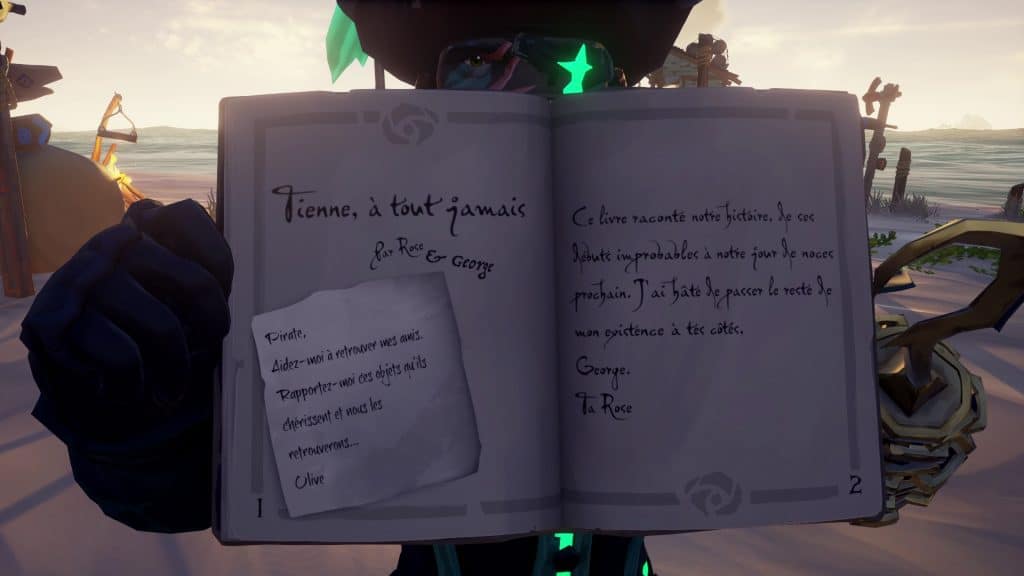 Tienne, à tout jamais
Par Rose & George
Pirate,
Aidez-moi à retrouver mes amis.
Rapportez-moi ces objets qu'ils
chérissent et nous les
retrouverons...
Olive
1
Ce livre raconte notre histoire, de ses
débuts improbables à notre jour de noces
prochain. J'ai hâte de passer le reste de
mon existence à tes côtés.
George,
Ta Rose
2